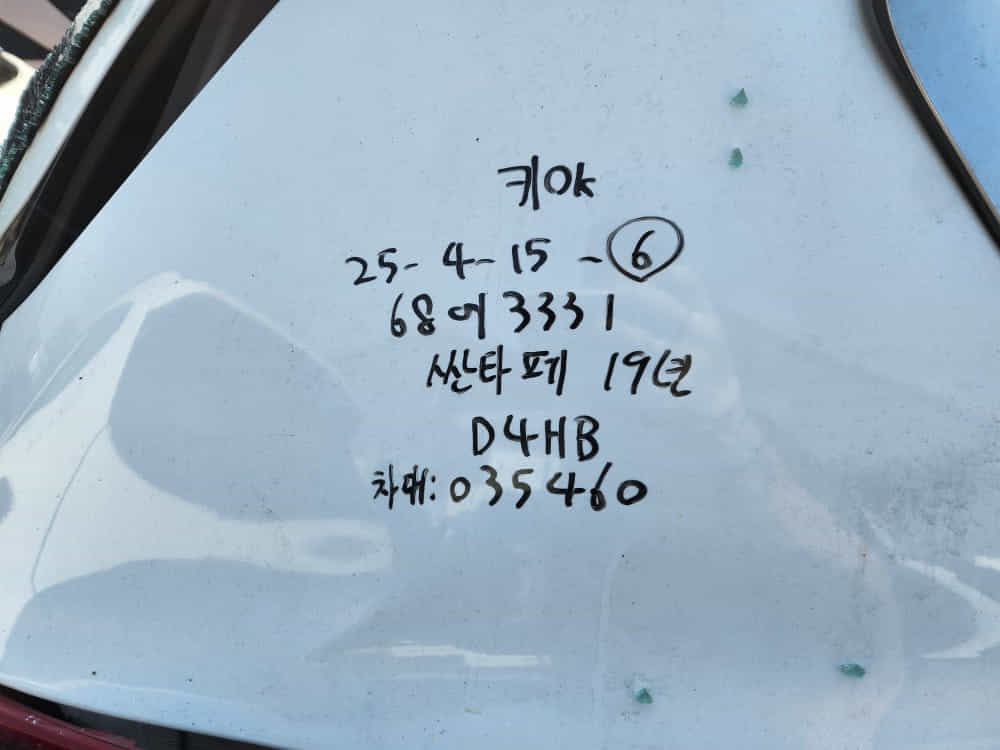 키OK
25-4-15-6
68어3331
싼타페 19년
D4HB
차대:035460